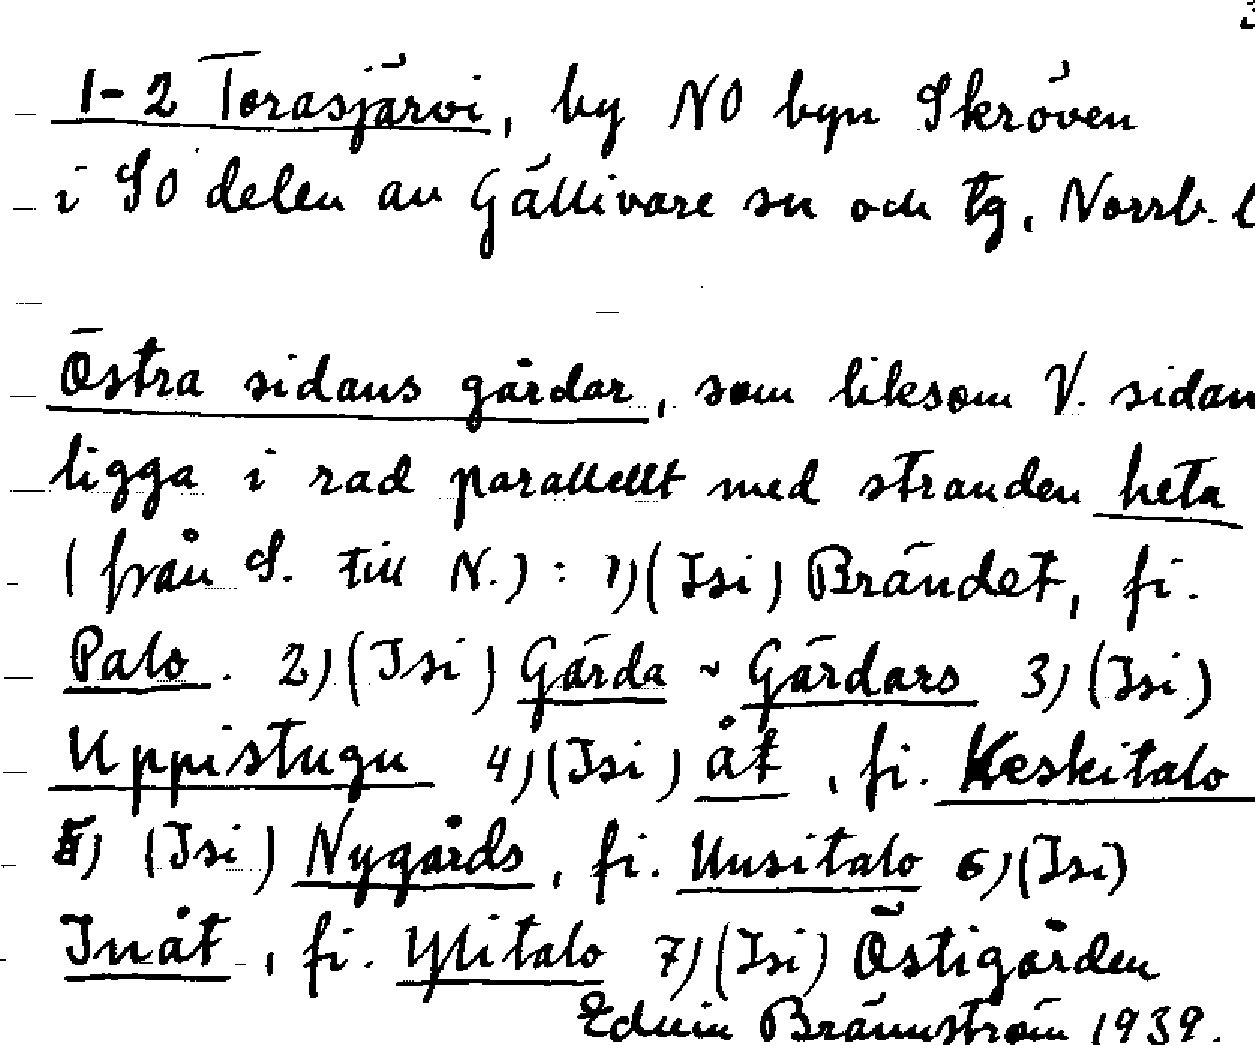 1-2 Torasjärvi, by NO byn Skröven
i SO delen av Gällivare sn och tg, Norrb. l
Östra sidans gårdar, som liksom V. sidan
ligga i rad parallellt med stranden heta
(från S. till N.): 1) (Isi) Brändet, fi.
Palo. 2) (Isi) Gärda ~ Gärdars 3) (Isi)
Uppistugu 4) (Isi) åt, fi. Keskitalo
5) (Isi) Nygårds, fi. Uusitalo 6) (Isi)
Inåt, fi. Ylitalo 7) (Isi) Östigården
Edvin Brännström 1939.